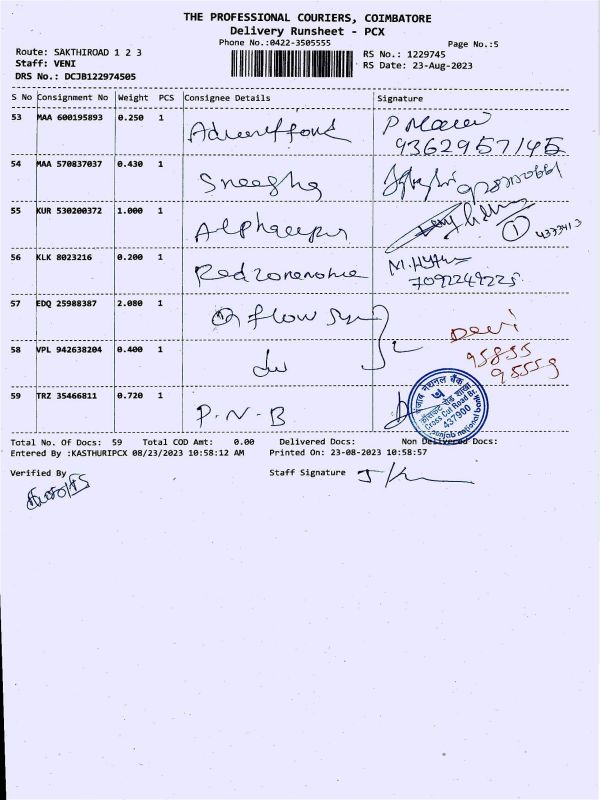 THE PROFESSIONAL COURIERS, COIMBATORE
Delivery Runsheet - PCX
Phone No.:0422-3505555
Page No.:5
Route: SAKTHIROAD 1 2 3
RS No.: 1229745
Staff: VENI
RS Date: 23-Aug-2023
DRS No.: DCJB122974505
S No Consignment No Weight PCS Consignee Details Signature
53 MAA 600195893 0.250 1
9362957145
54 MAA 570837037 0.430 1 Sneegha
55 KUR 530200372 1.000 1
1 4333413
56 KLK 8023216 0.200 1
7092249225
57 EDQ 25988387 2.080 1 flow
Devi
58 VPL 942638204 0.400 1 du
95855
95559
59 TRZ 35466811 0.720 1 P.N.B
पंजाब नैशनल बैंक
Cross Cut Road Br.
437900
punjab national bank
Total No. Of Docs: 59 Total COD Amt: 0.00 Delivered Docs: Non Delivered Docs:
Entered By :KASTHURIPCX 08/23/2023 10:58:12 AM Printed On: 23-08-2023 10:58:57
Verified By Staff Signature